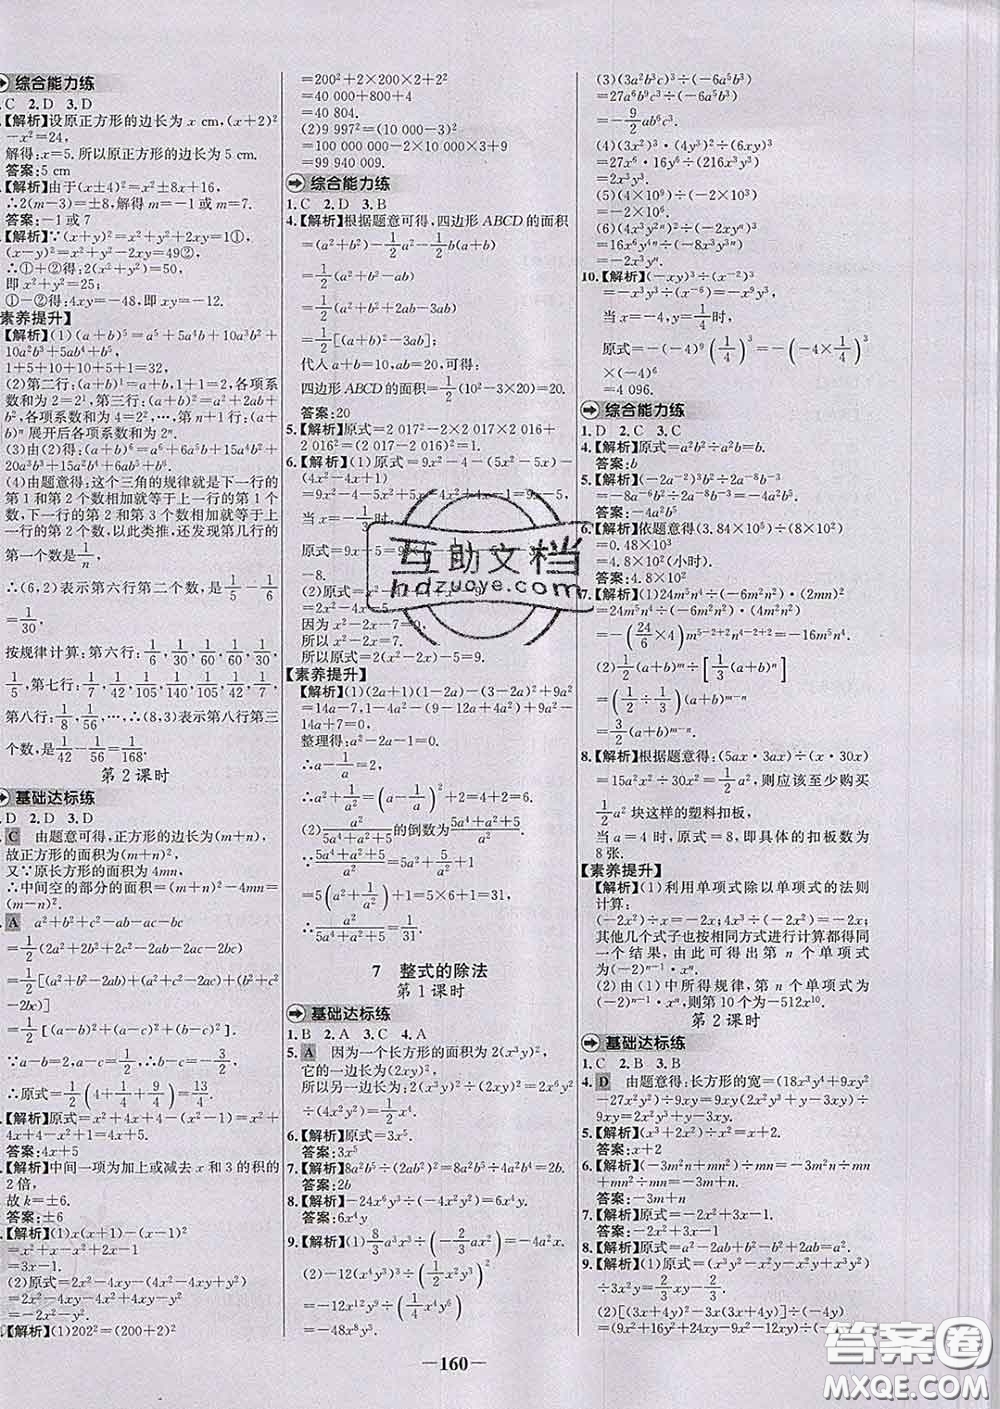 综合能力练
C 2.D 3.D
【解析】设原正方形的边长为 x cm,(x+2)²
−x²=24,
解得:x=5. 所以原正方形的边长为 5 cm.
答案:5 cm
【解析】由于(x±4)²=x²±8x+16,
∴2(m−3)=±8, 解得 m=−1 或 m=7.
答案:−1 或 7
【解析】∵(x+y)²=x²+y²+2xy=1①,
(x−y)²=x²+y²−2xy=49②,
∴①+②得:2(x²+y²)=50,
即 x²+y²=25;
①−②得:4xy=−48,即 xy=−12.
【素养提升】
【解析】(1)(a+b)⁵=a⁵+5a⁴b+10a³b²+
10a²b³+5ab⁴+b⁵,
1+5+10+10+5+1=32,
(2)第二行:(a+b)¹=a+b,各项系
数和为 2=2¹,第三行:(a+b)²=a²+2ab+
b²,各项系数和为 4=2²,…,第 n+1 行:(a+
b)ⁿ 展开后各项系数和为 2ⁿ.
(3)由(2)得:(a+b)⁶=a⁶+6a⁵b+15a⁴b²+
20a³b³+15a²b⁴+6ab⁵+b⁶.
(4)由题意得:这个三角的规律就是下一行的
第 1 和第 2 个数相加就等于上一行的第 1 个
数,下一行的第 2 和第 3 个数相加就等于上
一行的第 2 个数,以此类推,还发现第几行的
第一个数是 1/n,
∴(6,2)表示第六行第二个数,是 1/5−1/6
=1/30,
按规律计算:第六行:1/6, 1/30, 1/60, 1/60, 1/30,
第七行:1/7, 1/42, 1/105, 1/140, 1/105, 1/42, 1/7,
第八行:1/8, 1/56, …, ∴(8,3)表示第八行第三
个数,是 1/42−1/56=1/168.
第 2 课时
基础达标练
D 2.D 3.D
C 由题意可得,正方形的边长为(m+n),
故正方形的面积为(m+n)²,
又∵原长方形的面积为 4mn,
∴中间空的部分的面积=(m+n)²−4mn=
(m−n)².
A a²+b²+c²−ab−ac−bc
=1/2(2a²+2b²+2c²−2ab−2ac−2bc)
=1/2[(a²+b²−2ab)+(a²+c²−2ac)+(b²+c²
−2bc)]
=1/2[(a−b)²+(a−c)²+(b−c)²],
∵a−b=2,a−c=1/2,∴b−c=−3/2,
∴原式=1/2(4+1/4+9/4)=13/4.
【解析】原式=x²+4x+4−(x²−1)=x²+
4x+4−x²+1=4x+5.
答案:4x+5
【解析】中间一项为加上或减去 x 和 3 的积的
2 倍,
故 k=±6.
答案:±6
【解析】(1)x(x+1)−(x−1)²
=x²+x−x²+2x−1
=3x−1.
(2)原式=2x²−4xy−(x²−4xy+4y²)=
2x²−4xy−x²+4xy−4y²
=x²−4y².
【解析】(1)202²=(200+2)²
=200²+2×200×2+2²
=40 000+800+4
=40 804.
(2)9 997²=(10 000−3)²
=10 000²−2×10 000×3+9
=99 940 009.
综合能力练
1.C 2.D 3.B
4.【解析】根据题意可得,四边形 ABCD 的面积
=(a²+b²)−1/2a²−1/2b(a+b)
=1/2(a²+b²−ab)
=1/2(a²+b²+2ab−3ab)
=1/2[(a+b)²−3ab];
代入 a+b=10,ab=20,可得:
四边形 ABCD 的面积=1/2(10²−3×20)=20.
答案:20
5.【解析】原式=2 017²−2×2 017×2 016+
2 016²=(2 017−2 016)²=1.
6.【解析】(1)原式=9x²−4−(5x²−5x)−
(4x²−4x+1)
=9x²−4−5x²+5x−4x²+4x−1=9x−5,
当 x=
−8.
(2)原式
=2x²−4x−5.
因为 x²−2x−7=0,
所以 x²−2x=7.
所以原式=2(x²−2x)−5=9.
【素养提升】
【解析】(1)(2a+1)(1−2a)−(3−2a)²+9a²
=14a−7,1−4a²−(9−12a+4a²)+9a²−
14a+7=0,
整理得:a²−2a−1=0.
∴a−1/a=2,
∴a²+1/a²=(a−1/a)²+2=4+2=6.
(2)a²/(5a⁴+a²+5)的倒数为(5a⁴+a²+5)/a²,
∵(5a⁴+a²+5)/a²=5a²+1+5/a²
=5(a²+1/a²)+1=5×6+1=31,
∴a²/(5a⁴+a²+5)=1/31.
7 整式的除法
第 1 课时
基础达标练
1.B 2.A 3.C 4.A
5. A 因为一个长方形的面积为 2(x³y)²,
它的一边长为(1/2xy)²,
所以另一边长为:2(x³y)²÷(1/2xy)²=2x⁶y²
÷(1/4x²y²)=8x⁴.
6.【解析】原式=3x⁵.
答案:3x⁵
7.【解析】8a²b⁵÷(2ab²)²=8a²b⁵÷4a²b⁴=2b.
答案:2b
8.【解析】−24x⁶y³÷(−4x²y²)=6x⁴y.
答案:6x⁴y
9.【解析】(1)8/3a³x³÷(−2/3ax²)=−4a²x.
(2)−12(x⁴y³)³÷(−1/2x²y²)²
=−12x¹²y⁹÷(1/4x⁴y⁴)
=−48x⁸y⁵.
(3)(3a²b³c)³÷(−6a⁵b³)
=27a⁶b⁹c³÷(−6a⁵b³)
=−9/2ab⁶c³.
(4)(3x²)³·(4y³)²÷(6xy)³
=27x⁶·16y⁶÷(216x³y³)
=2x³y³.
=−2×10⁶.
=−2x³y³.
10.【解析】(−xy)³÷(x⁻²)³
当 x=−4,y=1/4 时,
原式=−(−4)⁹(1/4)³=−(−4×1/4)³
×(−4)⁶
=4 096.
综合能力练
1.D 2.C 3.C
4.【解析】原式=a²b²÷a²b=b.
答案:b
5.【解析】(−2a⁻²)³b²÷2a⁻⁸b⁻³
=−8a⁻⁶b²÷2a⁻⁸b⁻³=−4a²b⁵.
答案:−4a²b⁵
6.【解析】依题意得(3.84×10⁵)÷(8×10²)
=0.48×10³
=4.8×10²(小时).
答案:4.8×10²
7.【解析】(1)24m⁵n⁴÷(−6m²n²)·(2mn)²
=24m⁵n⁴÷(−6m²n²)×4m²n²
=−(24/6×4)m⁵⁻²⁺²n⁴⁻²⁺²=−16m⁵n⁴.
(2)1/2(a+b)ᵐ÷[1/3(a+b)ⁿ]
=(1/2÷1/3)(a+b)ᵐ⁻ⁿ
=3/2(a+b)ᵐ⁻ⁿ.
8.【解析】根据题意得:(5ax·3ax)÷(x·30x)
=15a²x²÷30x²=1/2a²,则应该至少购买
1/2a² 块这样的塑料扣板,
当 a=4 时,原式=8,即具体的扣板数为
8 张.
【素养提升】
【解析】(1)利用单项式除以单项式的法则
计算:
(−2x²)÷x=−2x;4x³÷(−2x²)=−2x;
(−8x⁴)÷4x³=−2x;
其他几个式子也按相同方式进行计算都得同
一个结果,由此可得出第 n 个单项式为
(−2)ⁿ⁻¹·xⁿ.
(2)由(1)中所得规律,第 n 个单项式为
(−2)ⁿ⁻¹·xⁿ,则第 10 个为−512x¹⁰.
第 2 课时
基础达标练
1.C 2.B 3.B
4. D 由题意得:长方形的宽=(18x³y⁴+9xy²
−27x²y²)÷9xy=18x³y⁴÷9xy+9xy²÷9xy
−27x²y²÷9xy=2x²y³+y−3xy.
5.【解析】(x³+2x²)÷x²=x+2.
答案:x+2
6.【解析】(−3m²n+mn²)÷mn=−3m²n÷mn+
mn²÷mn=−3m+n.
答案:−3m+n
7.【解析】原式=−2x²+3x−1.
答案:−2x²+3x−1
8.【解析】原式=a²−2ab+b²−b²+2ab=a².
9.【解析】(1)原式=(x³y−x²y²−x²y+x³y²)
÷3x²y=
(2)[(3x+4y)²−3x(3x+4y)]÷(−4y)
=(9x²+16y²+24xy−9x²−12xy)÷
互助文档
hdzuoye.com
160
答案圈
MXQE.COM